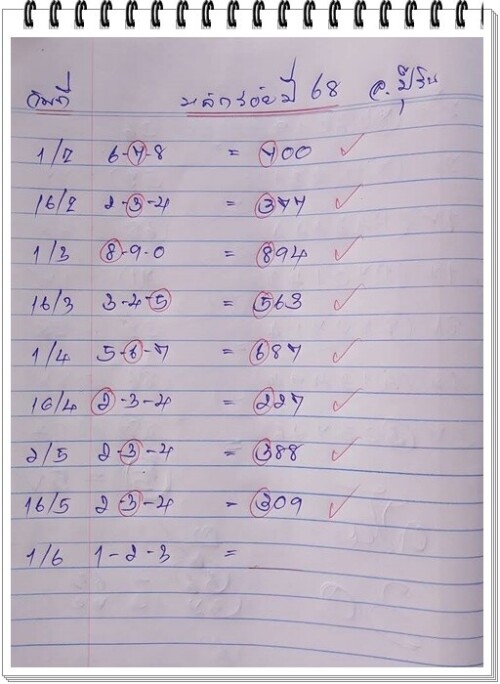 วันที่ หลักร้อยปี 68 อ.ปีใหม่
1/2 6-7-8 = 700
16/2 2-3-4 = 377
1/3 8-9-0 = 894
16/3 3-4-5 = 563
1/4 5-6-7 = 687
16/4 2-3-4 = 227
2/5 2-3-4 = 388
16/5 2-3-4 = 309
1/6 1-2-3 =